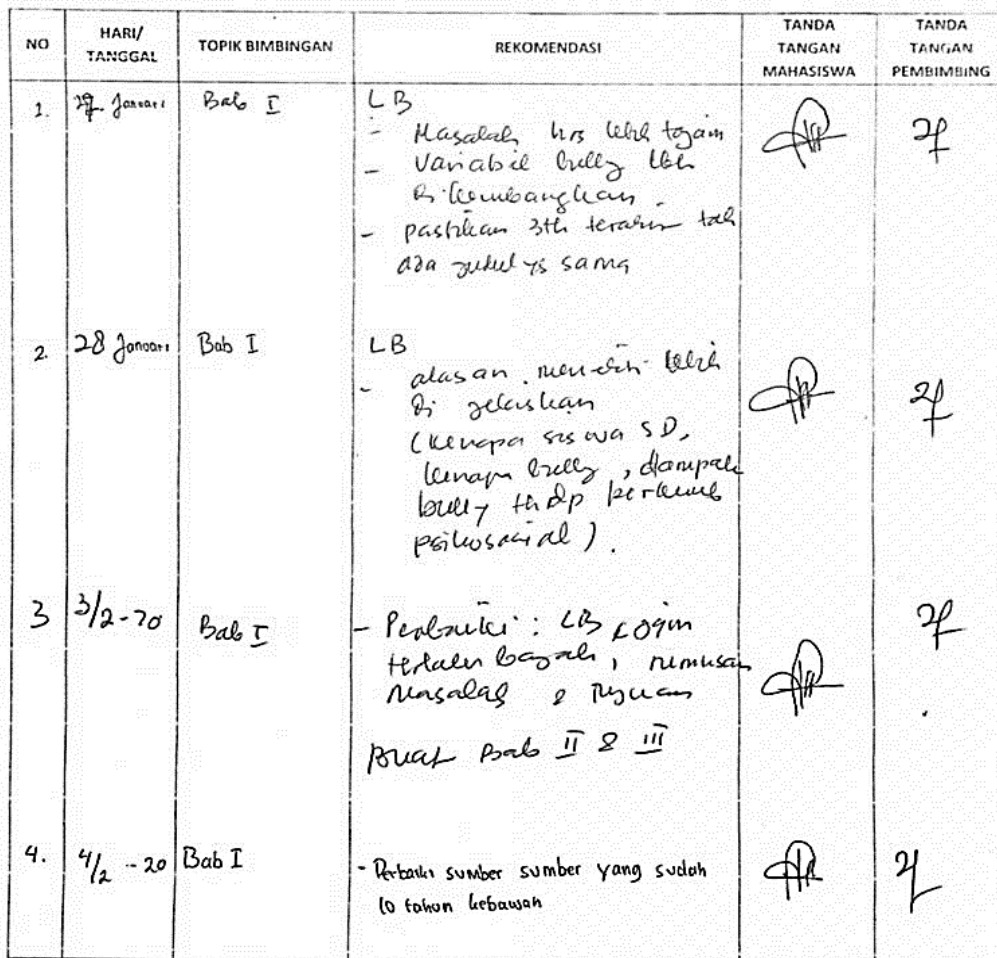 NO
HARI/
TANGGAL
TOPIK BIMBINGAN
REKOMENDASI
TANDA
TANGAN
MAHASISWA
TANDA
TANGAN
PEMBIMBING
1.
27 Januari
Bab I
LB
- Masalah hrs lebih tajam
- Variabel bully lbh
di kembangkan
- pastikan 3th terakhir tdk
ada judul yg sama
2.
28 Januari
Bab I
LB
- alasan lebih
di jelaskan
(kenapa siswa SD,
kenapa bully, dampak
bully thdp perkemb
psikososial).
3
3/2-20
Bab I
- Perbaiki : LB
terlalu banyak, rumusan
masalah & Tujuan
Buat Bab II & III
4.
4/2 -20
Bab I
- Perbaiki sumber sumber yang sudah
10 tahun kebawah